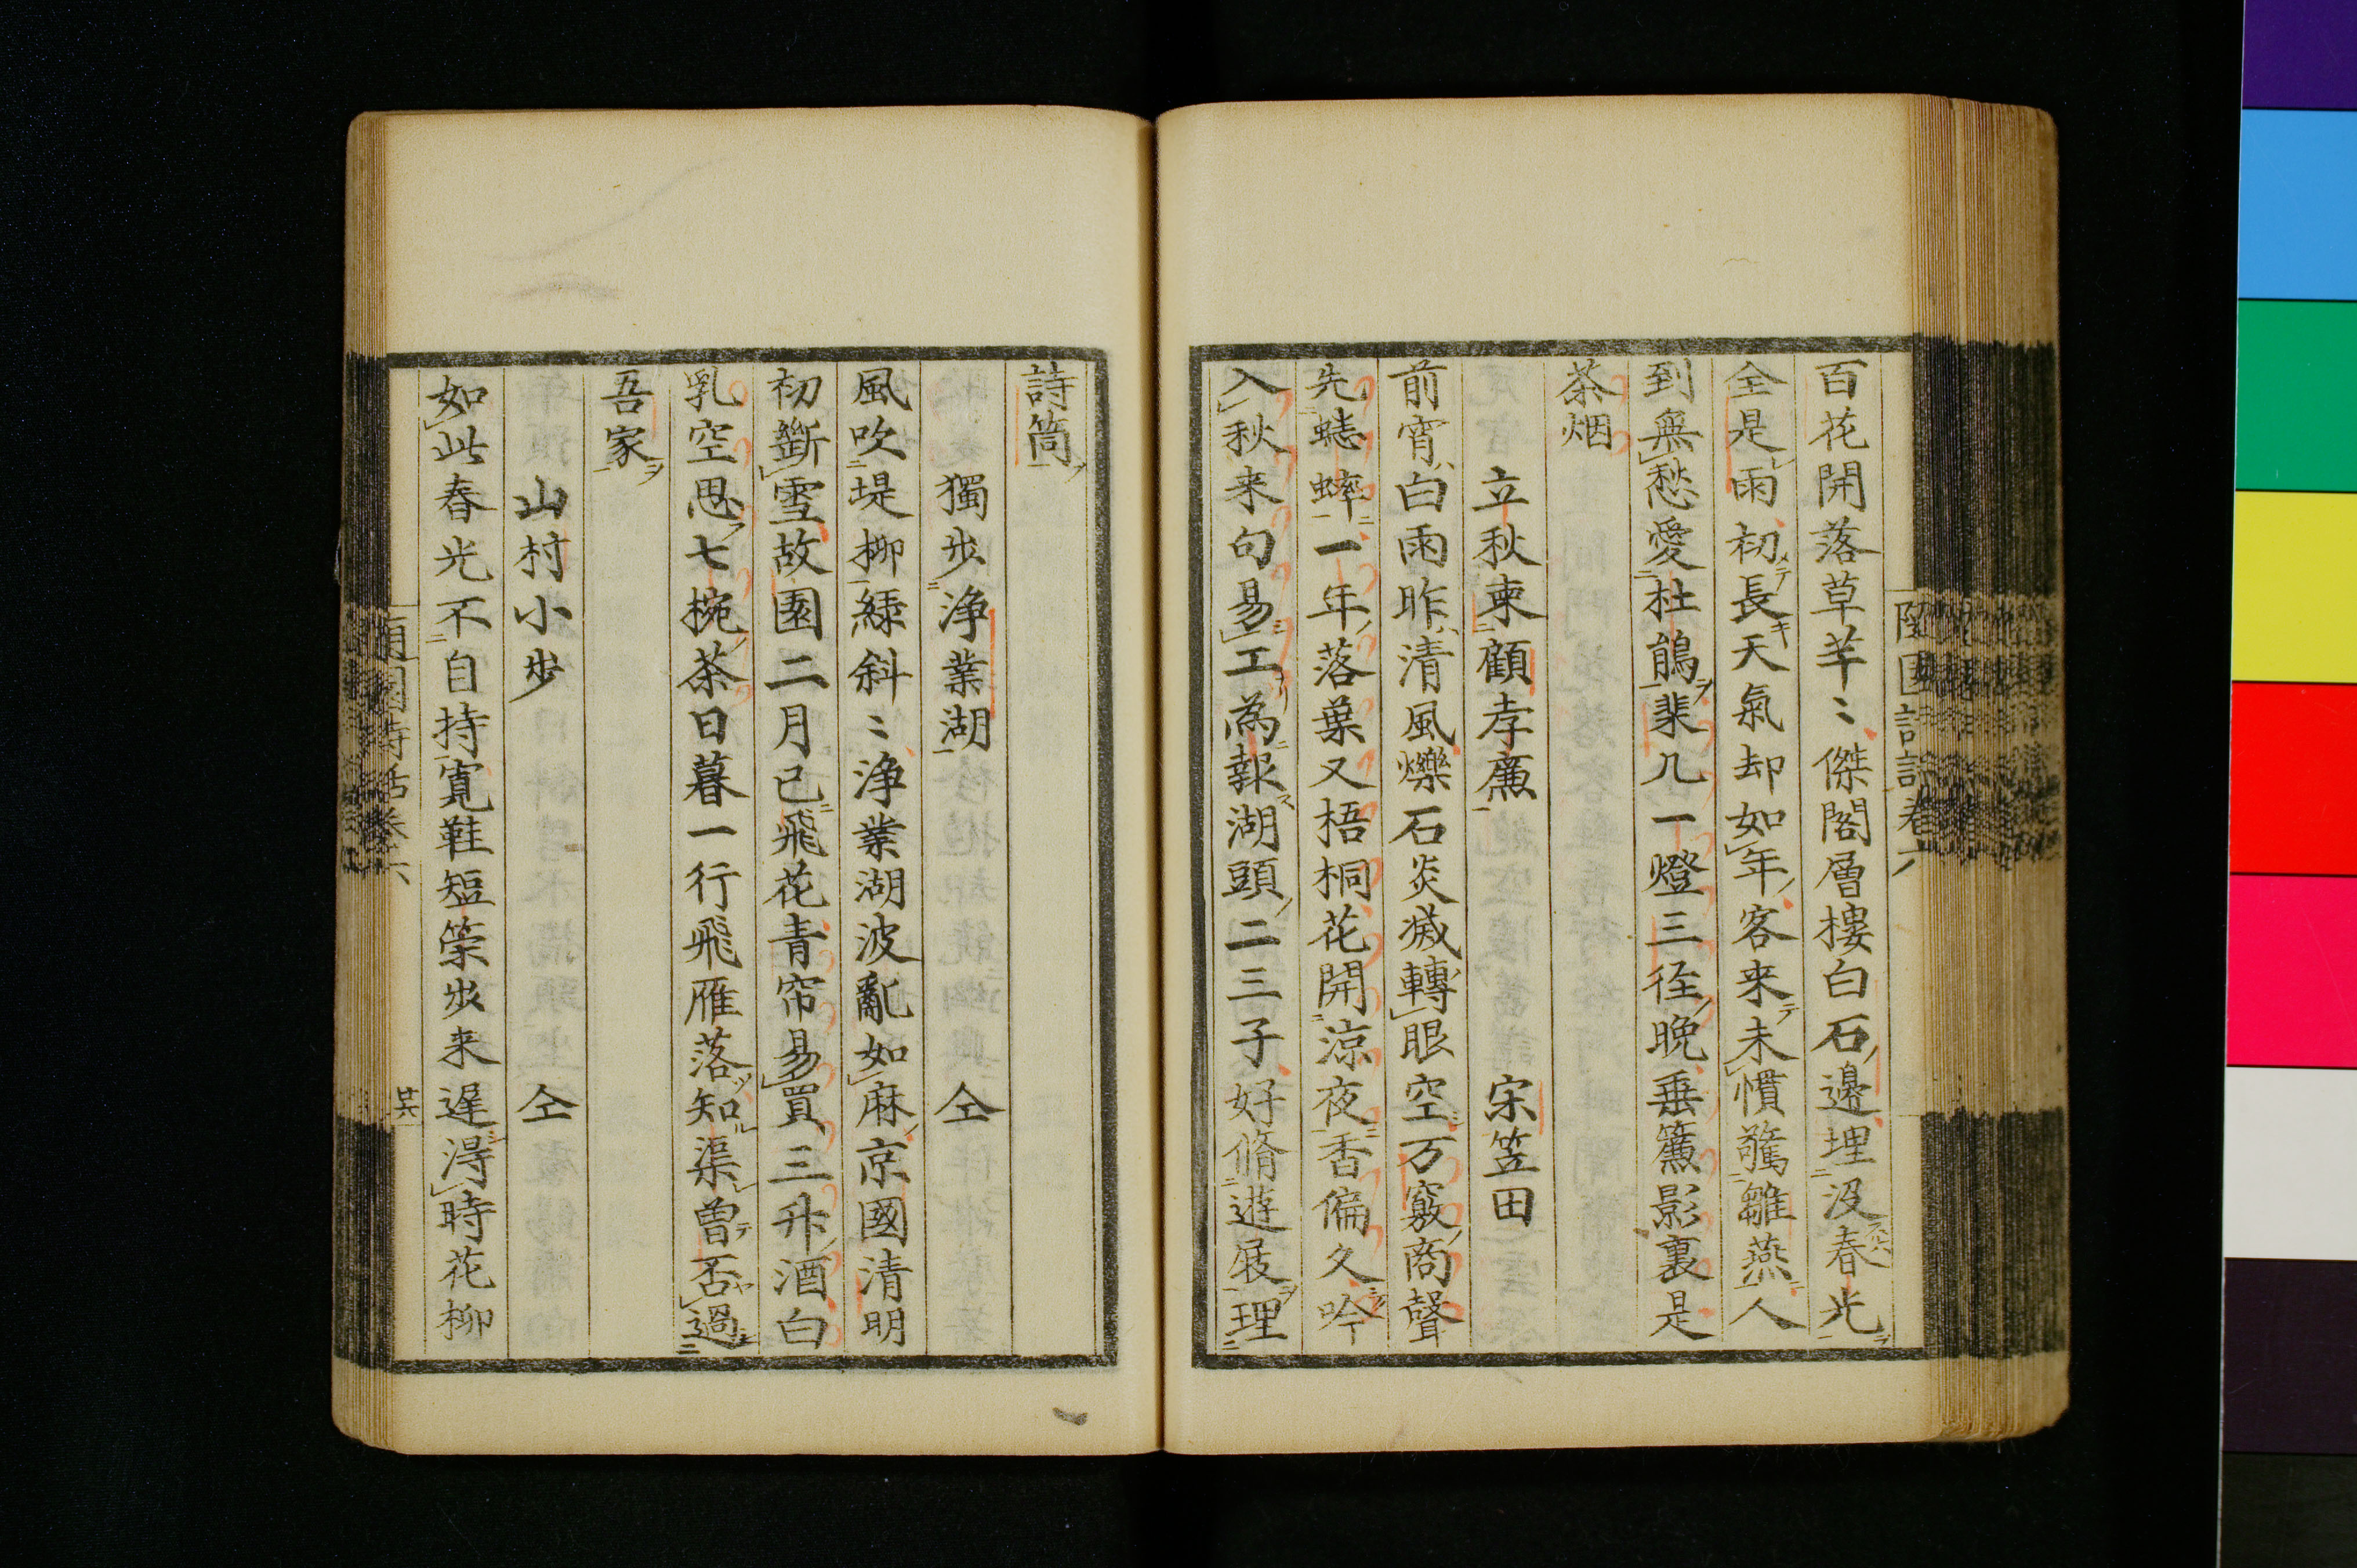 百花開落草芊〻傑閣層樓白石邊埋没春光
全是雨初長天氣却如年客来未慣驚雛燕人
到無愁愛杜鵑棐几一燈三徑晚垂簾影裏是
茶烟
立秋柬顧孝廉 宋笠田
前宵白雨昨清風爍石炎威轉眼空万竅商聲
先蟋蟀一年落葉又梧桐花開涼夜香偏久吟
入秋来句易工為報湖頭二三子好脩遊屐理
詩筒
獨步浄業湖 仝
風吹堤柳綠斜〻浄業湖波亂如麻京國清明
初斷雪故園二月已飛花青帘易買三升酒白
乳空思七椀茶日暮一行飛雁落知渠曽否過
吾家
山村小步 仝
如此春光不自持寛鞋短策步来遲淂時花柳
随園詩話巻六
廿六